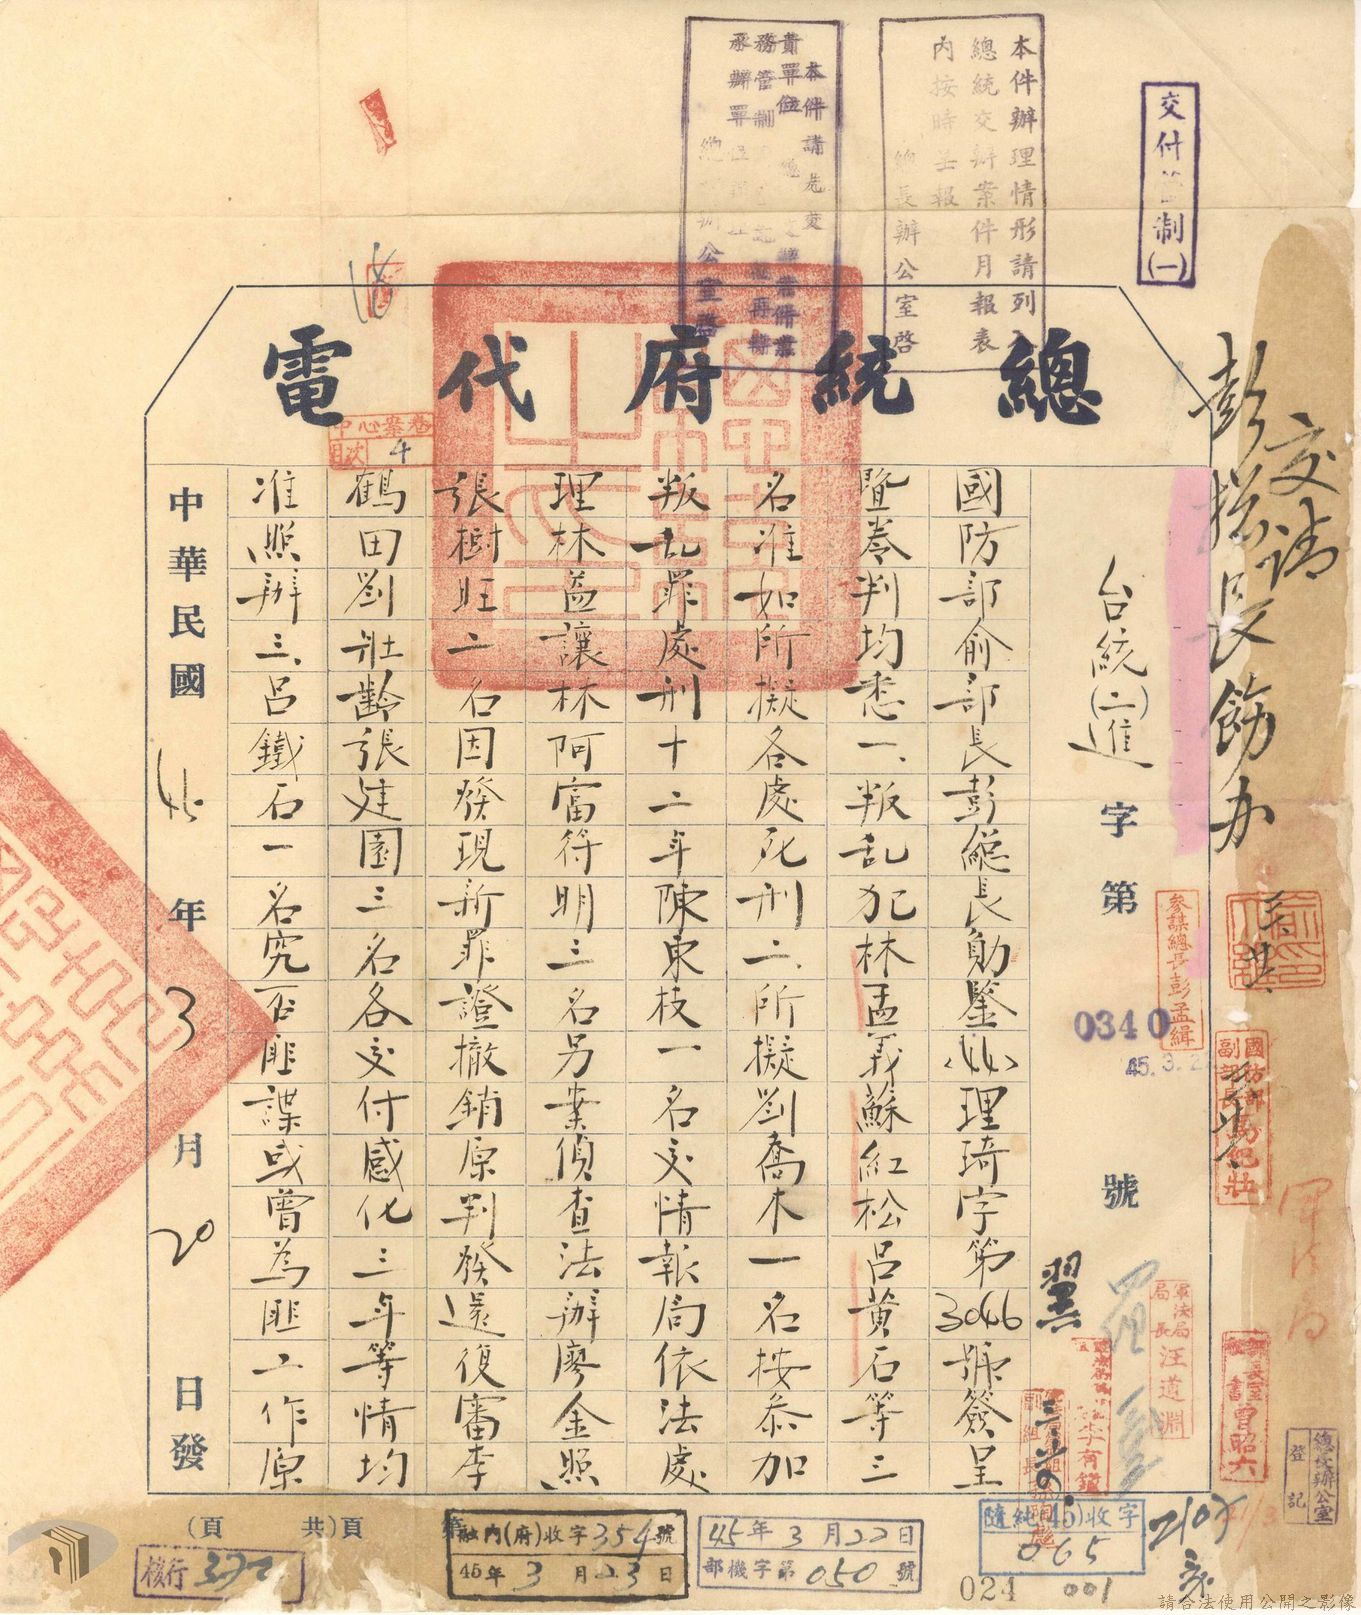 交付管制(一)
本件辦理情形請列入
總統交辦案件月報表
內按時呈報
總長辦公室啓
本件請先交
總長辦公室啓
總統府代電
中心案卷
目次 4
交請
彭總長飭办
台統(二)進 字第 號
0340
45.3.2
參謀總長彭孟緝
國防部
副部長馬紀壯
軍法局
局長汪道淵
國防部俞部長彭總長勛鑒(45)理琦字第3046號簽呈
暨卷判均悉一、叛乱犯林孟義蘇紅松呂黃石等三
名准如所擬各處死刑二、所擬劉喬木一名按叅加
叛乱罪處刑十二年陳東枝一名交情報局依法處
理林益讓林阿富符明三名另案偵查法辦廖金照
張樹旺二名因發現新罪證撤銷原判發還復審李
鶴田劉壯齡張建園三名各交付感化三年等情均
准照辦三、呂鐵石一名究否匪諜或曾為匪工作原
中華民國45年3月20日發
曾昭六
總長辦公室
登記
(頁 共)頁 第
核行 372
內(府)收字354號
45年3月23日
45年3月22日
部機字第050號
隨純(45)收字
065
024
001
請合法使用公開之影像